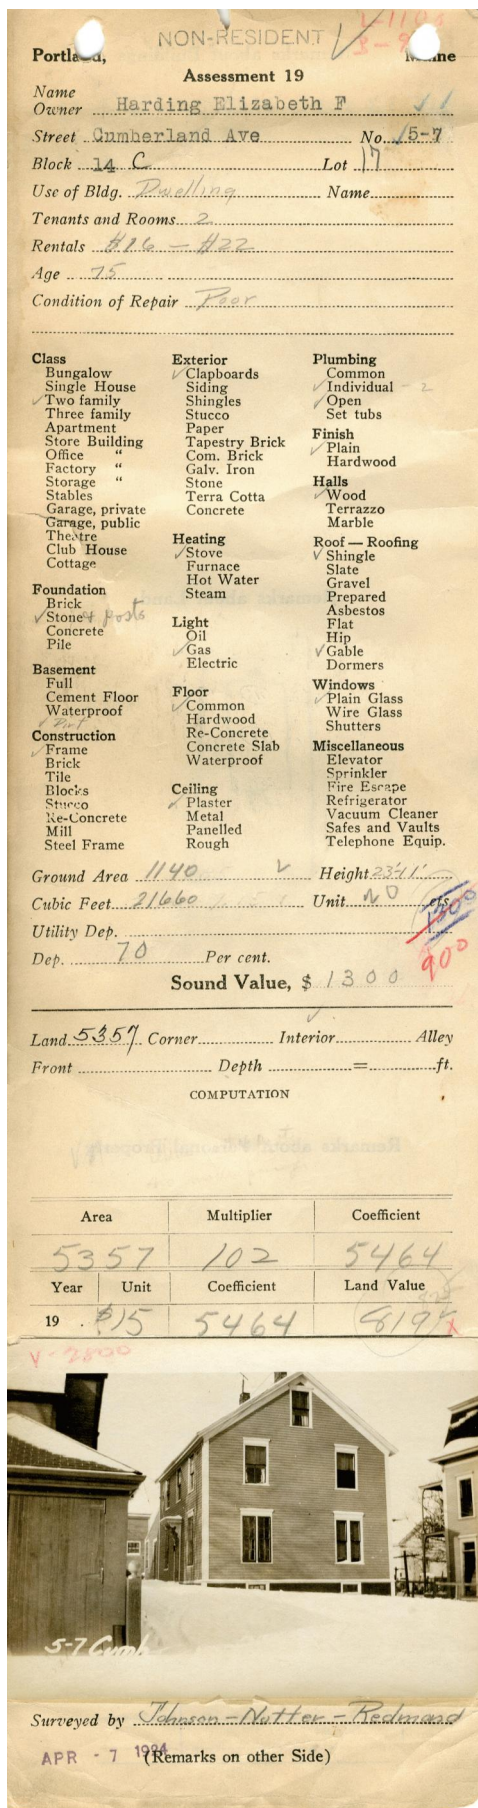 NON-RESIDENT
Portland, Maine
Assessment 19
Name
Owner Harding Elizabeth F
Street Cumberland Ave No. 5-7
Block 14 C Lot 17
Use of Bldg. Dwelling Name
Tenants and Rooms 2
Rentals $16 - $22
Age 75
Condition of Repair Poor
Class
Bungalow
Single House
✓Two family
Three family
Apartment
Store Building
Office "
Factory "
Storage "
Stables
Garage, private
Garage, public
Theatre
Club House
Cottage
Foundation
Brick
✓Stone & posts
Concrete
Pile
Basement
Full
Cement Floor
Waterproof
✓Dirt
Construction
✓Frame
Brick
Tile
Blocks
Stucco
Re-Concrete
Mill
Steel Frame
Exterior
✓Clapboards
Siding
Shingles
Stucco
Paper
Tapestry Brick
Com. Brick
Galv. Iron
Stone
Terra Cotta
Concrete
Heating
✓Stove
Furnace
Hot Water
Steam
Light
Oil
✓Gas
Electric
Floor
✓Common
Hardwood
Re-Concrete
Concrete Slab
Waterproof
Ceiling
✓Plaster
Metal
Panelled
Rough
Plumbing
Common
✓Individual - 2
✓Open
Set tubs
Finish
✓Plain
Hardwood
Halls
✓Wood
Terrazzo
Marble
Roof — Roofing
✓Shingle
Slate
Gravel
Prepared
Asbestos
Flat
Hip
✓Gable
Dormers
Windows
✓Plain Glass
Wire Glass
Shutters
Miscellaneous
Elevator
Sprinkler
Fire Escape
Refrigerator
Vacuum Cleaner
Safes and Vaults
Telephone Equip.
Ground Area 1140 ✓ Height 23'11"
Cubic Feet 21660 Unit 20 cts.
1300
Utility Dep.
900
Dep. 70 Per cent.
Sound Value, $ 1300
Land 5357 Corner Interior ✓ Alley
Front Depth = ft.
COMPUTATION
Area Multiplier Coefficient
5357 102 5464
Year Unit Coefficient Land Value
19 . $15 5464 819
V-2800
5-7 Cumb
Surveyed by Johnson-Nutter-Redmond
APR - 7 1924
(Remarks on other Side)